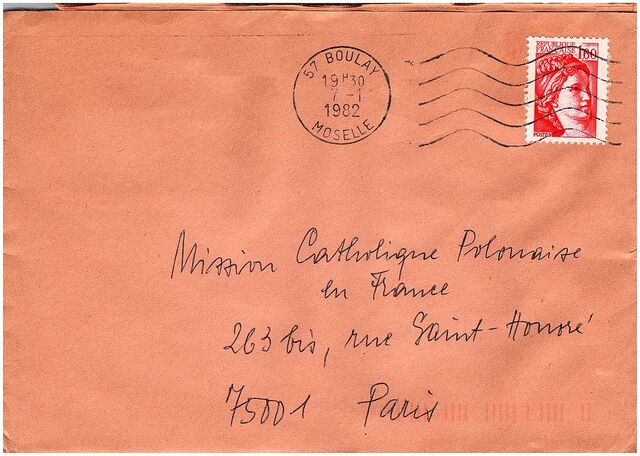 57 BOULAY
19H30
7-1
1982
MOSELLE
REPUBLIQUE
FRANCAISE 1,60
POSTES
Mission Catholique Polonaise
en France
263 bis, rue Saint-Honoré
75001 Paris